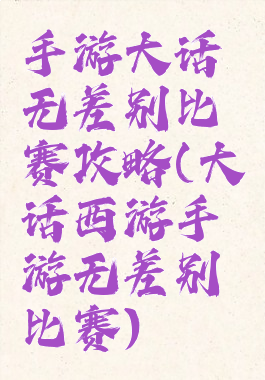 手游大话
无差别比
赛攻略(大
话西游手
游无差别
比赛)